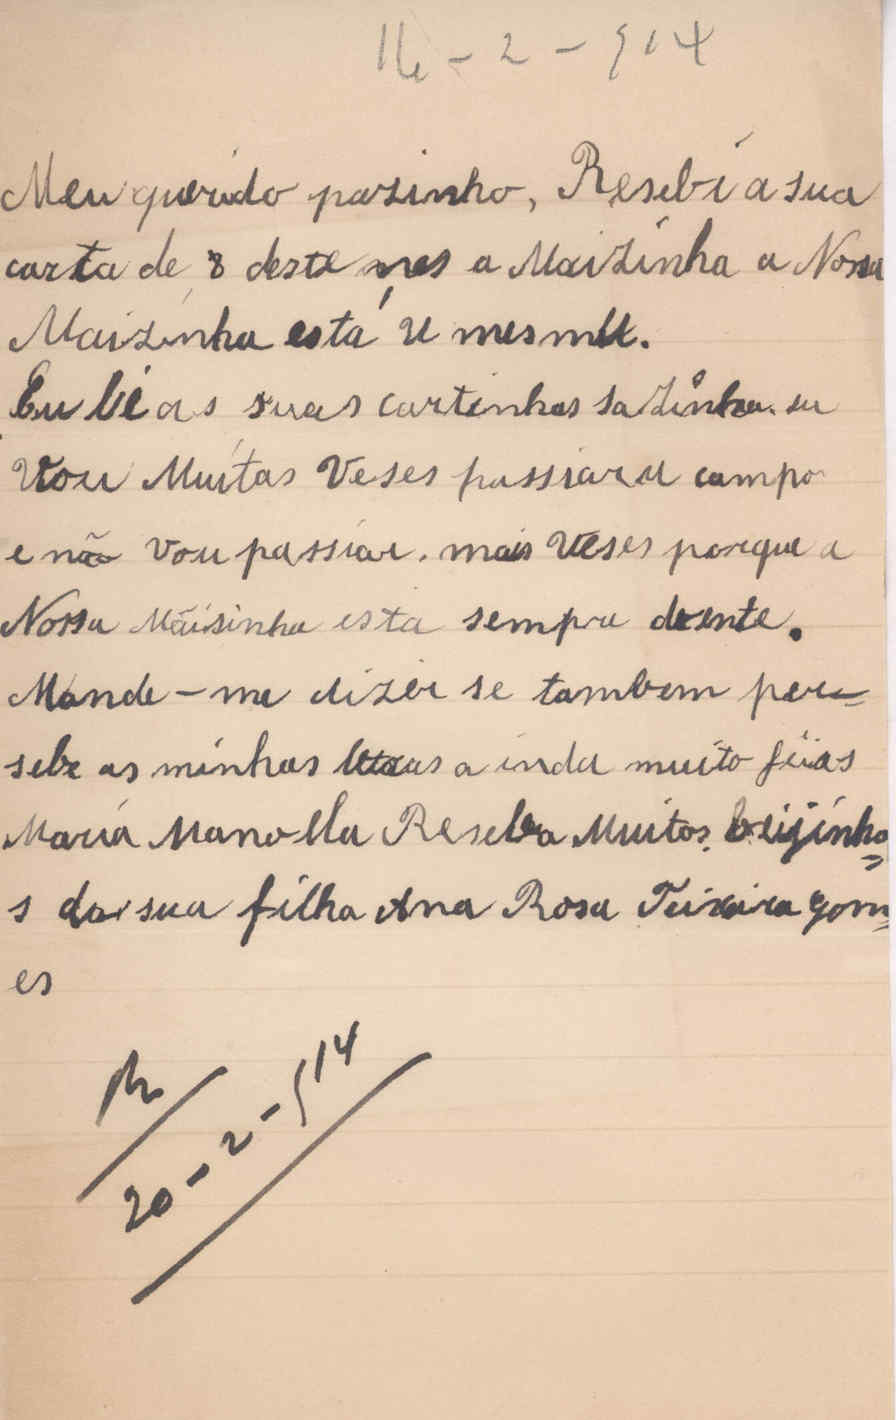 16-2-914
Meu querido paizinho, Resebí a sua
carta de 8 deste mes a Maizinha a Nossa
Maizinha está u mesmu.
Eu lé as suas cartinhas sazinha. eu
Vou Muítas Veses passiar u campo
e não vou passiar. mais Veses porque a
Nossa Mãisinha esta sempre doente.
Mande-me dizer se tambem per=
sebe as mínhas letras a índa muíto feias
María Manoella Reseba Muitos beijinho=
s da sua fílha Ana Rosa Teixeira gom=
es
R
20-2-914